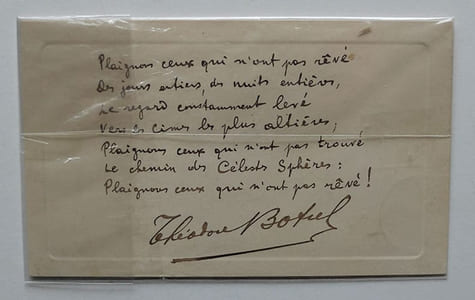 Plaignons ceux qui n'ont pas rêvé
Des jours entiers, des nuits entières,
Le regard constamment levé
Vers les cimes les plus altières;
Plaignons ceux qui n'ont pas trouvé
Le chemin des Célestes Sphères:
Plaignons ceux qui n'ont pas rêvé!
Théodore Botrel